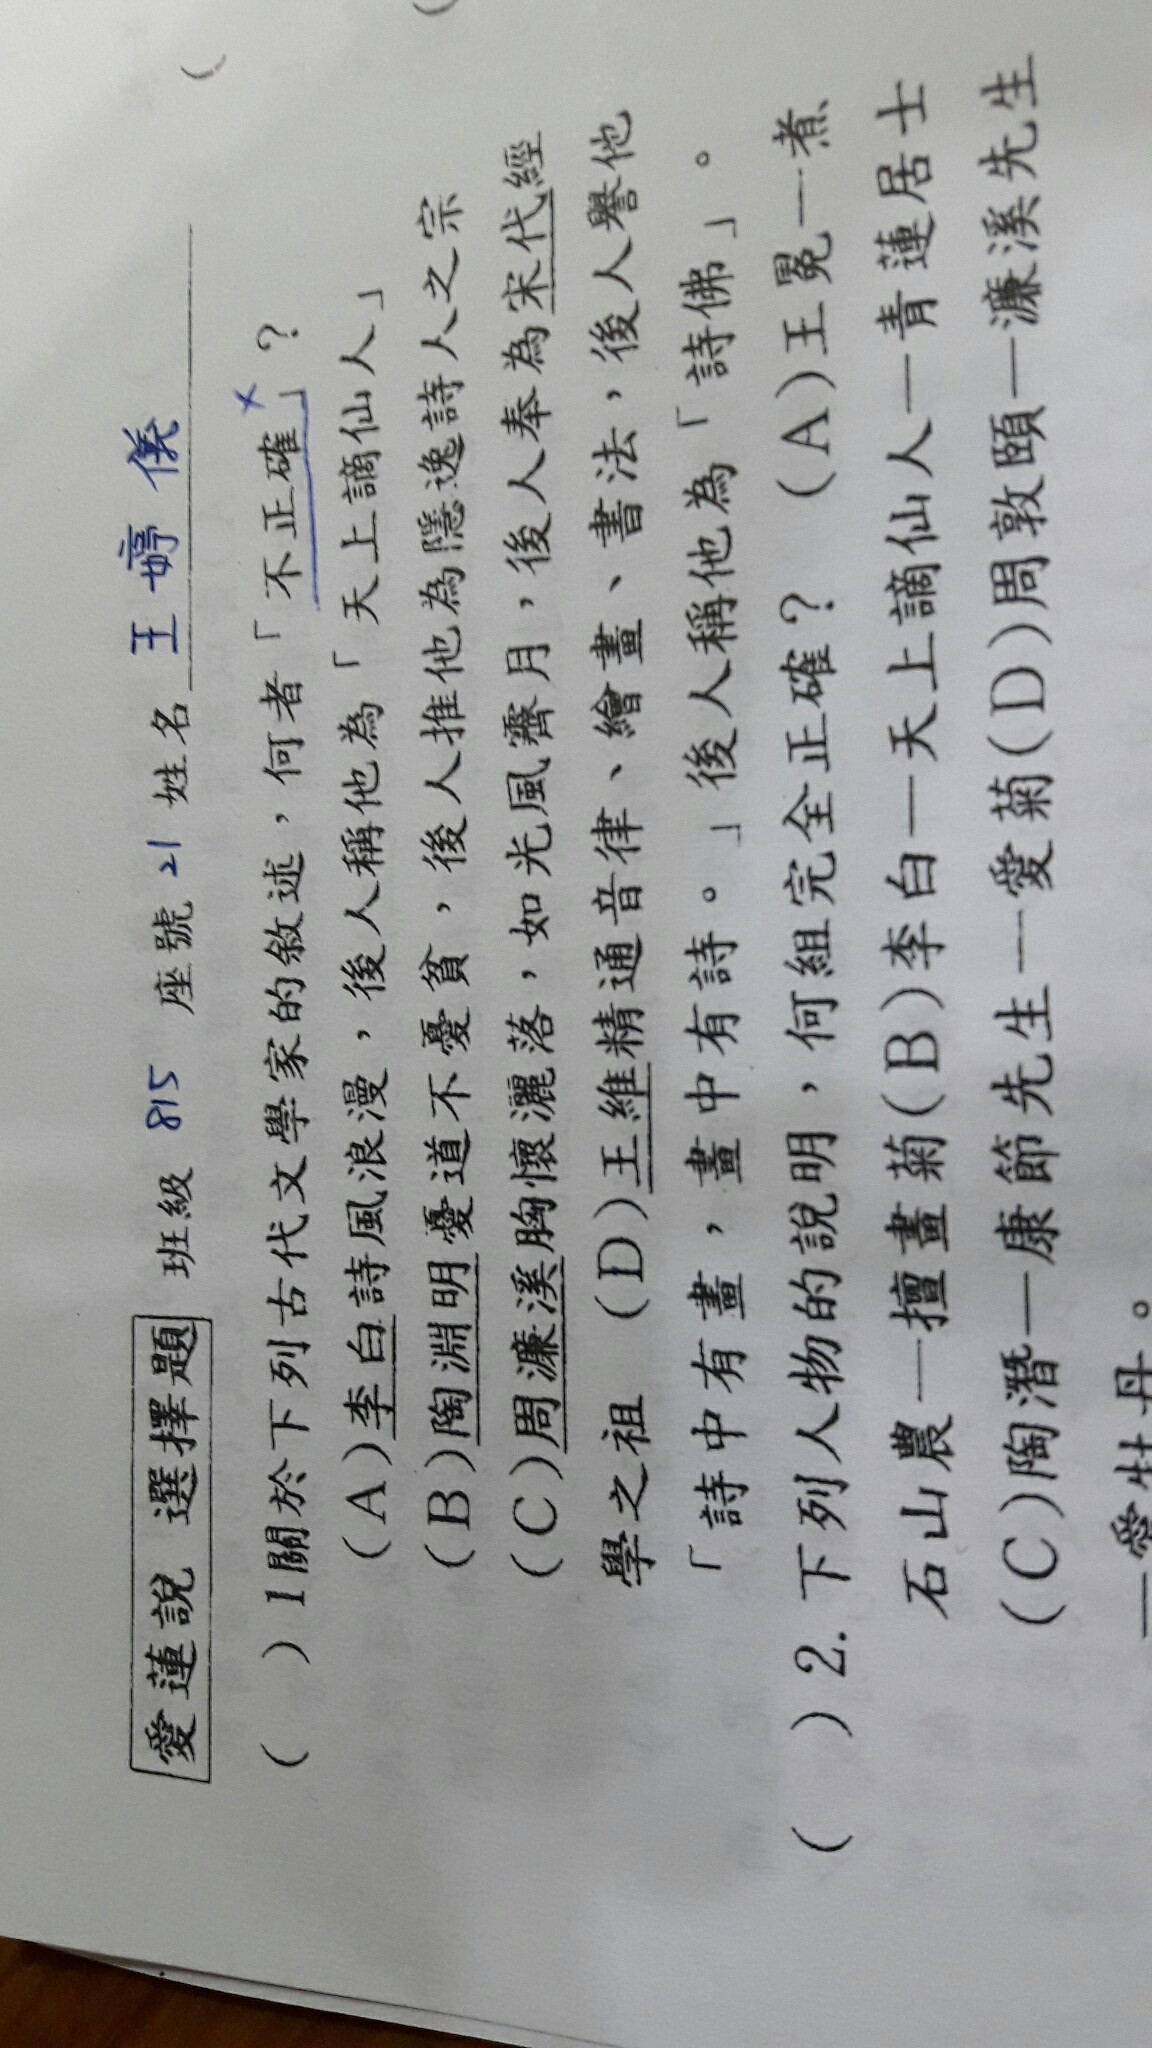 愛蓮說 選擇題 班級 815 座號 21 姓名 王婷儀
( )1關於下列古代文學家的敘述，何者「不正確」？ x
(A)李白詩風浪漫，後人稱他為「天上謫仙人」
(B)陶淵明憂道不憂貧，後人推他為隱逸詩人之宗
(C)周濂溪胸懷灑落，如光風霽月，後人奉為宋代經
學之祖 (D)王維精通音律、繪畫、書法，後人譽他
「詩中有畫，畫中有詩。」後人稱他為「詩佛」。
( )2. 下列人物的說明，何組完全正確？ (A)王冕—煮
石山農—擅畫菊(B)李白—天上謫仙人—青蓮居士
(C)陶潛—康節先生—愛菊(D)周敦頤—濂溪先生
—愛牡丹。